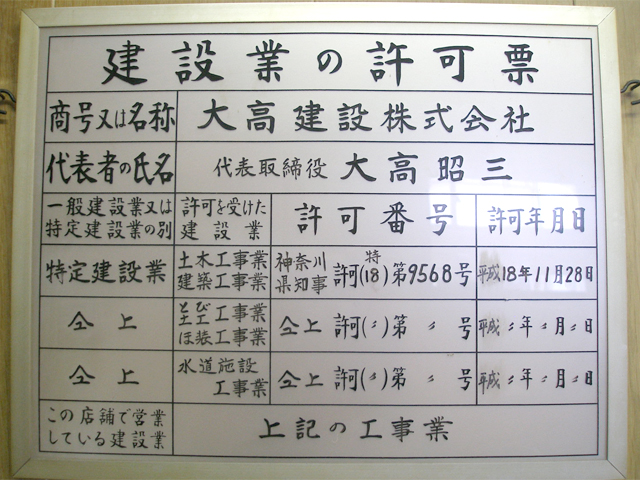 建設業の許可票
商号又は名称 大高建設株式会社
代表者の氏名 代表取締役 大高昭三
一般建設業又は 特定建設業の別 許可を受けた 建設業 許可番号 許可年月日
特定建設業 土木工事業 建築工事業 神奈川 県知事 許可(特 18)第9568号 平成18年11月28日
仝上 とび 土工工事業 ほ装工事業 仝上 許可(〃)第 〃 号 平成〃年〃月〃日
仝上 水道施設 工事業 仝上 許可(〃)第 〃 号 平成〃年〃月〃日
この店舗で営業 している建設業 上記の工事業